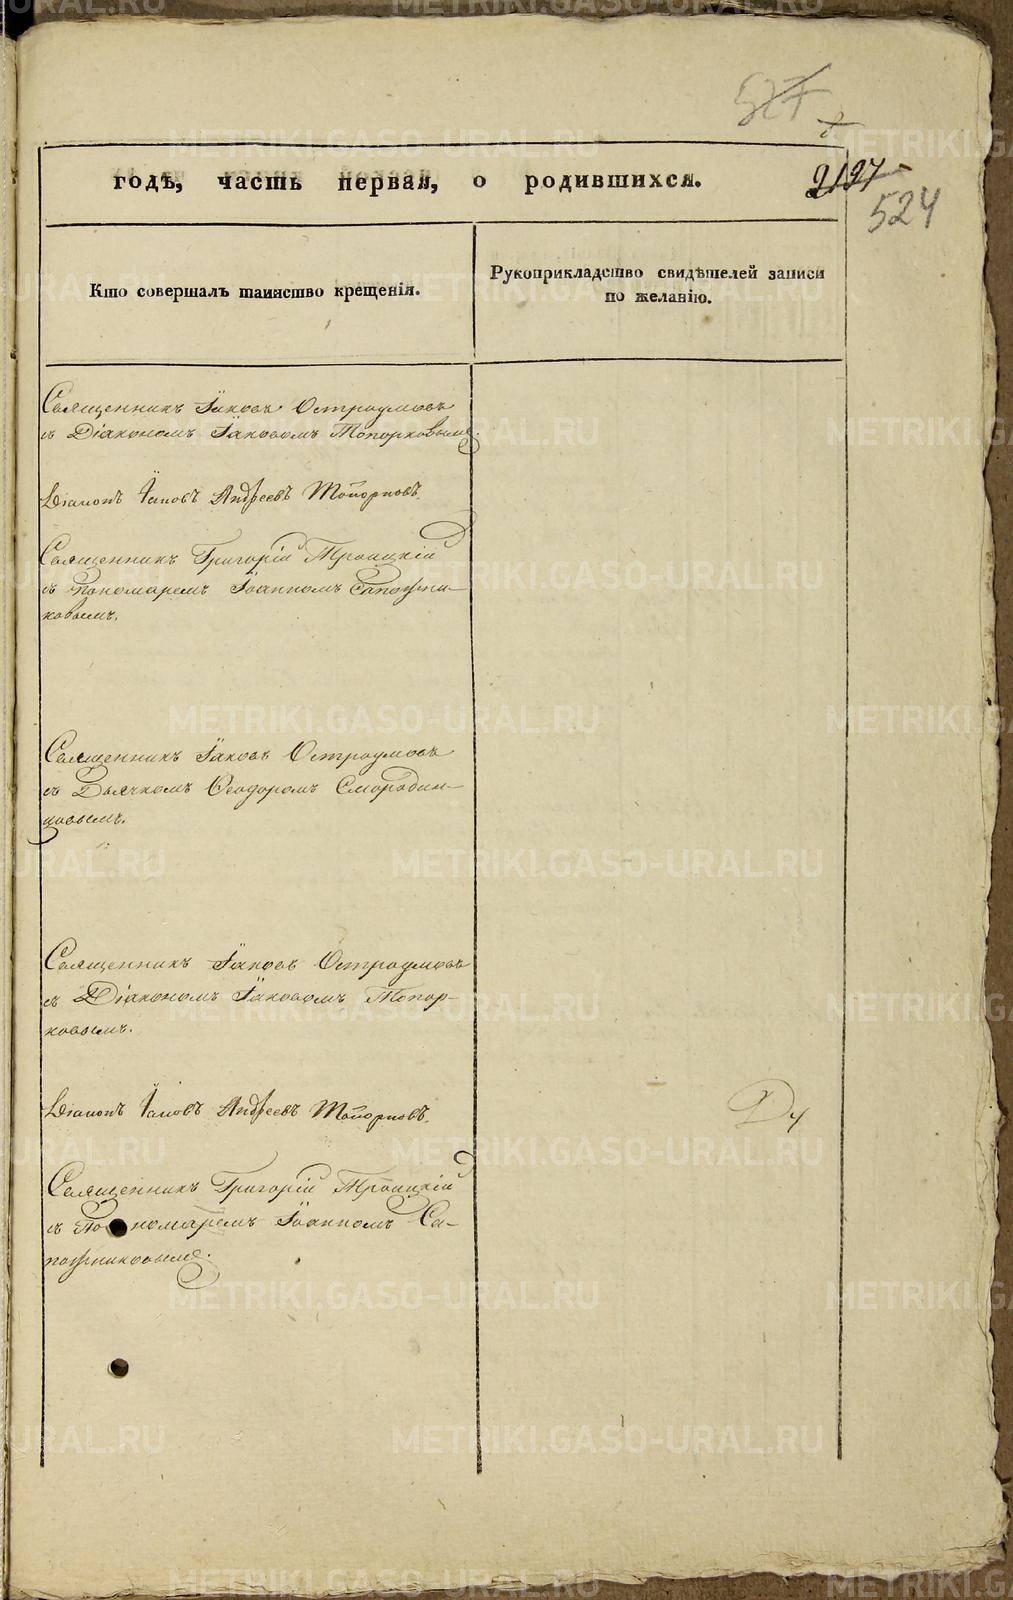 527
2197
524
годѣ, часть первая, о родившихся.
Кто совершалъ таинство крещенія.
Рукоприкладство свидѣтелей записи
по желанію.
Священникъ Іаковъ Остроумовъ
съ Діакономъ Іаковомъ Топорковымъ.
Діаконъ Іаковъ Андреевъ Топорковъ.
Священникъ Григорій Троицкій
съ Пономаремъ Іоанномъ Сапожни-
ковымъ.
Священникъ Іаковъ Остроумовъ
съ Дьячкомъ Ѳеодоромъ Смородин-
цовымъ.
Священникъ Іаковъ Остроумовъ
съ Діакономъ Іаковомъ Топор-
ковымъ.
Діаконъ Іаковъ Андреевъ Топорковъ.
Священникъ Григорій Троицкій
съ Пономаремъ Іоанномъ Са-
пожниковымъ.
METRIKI.GASO-URAL.RU